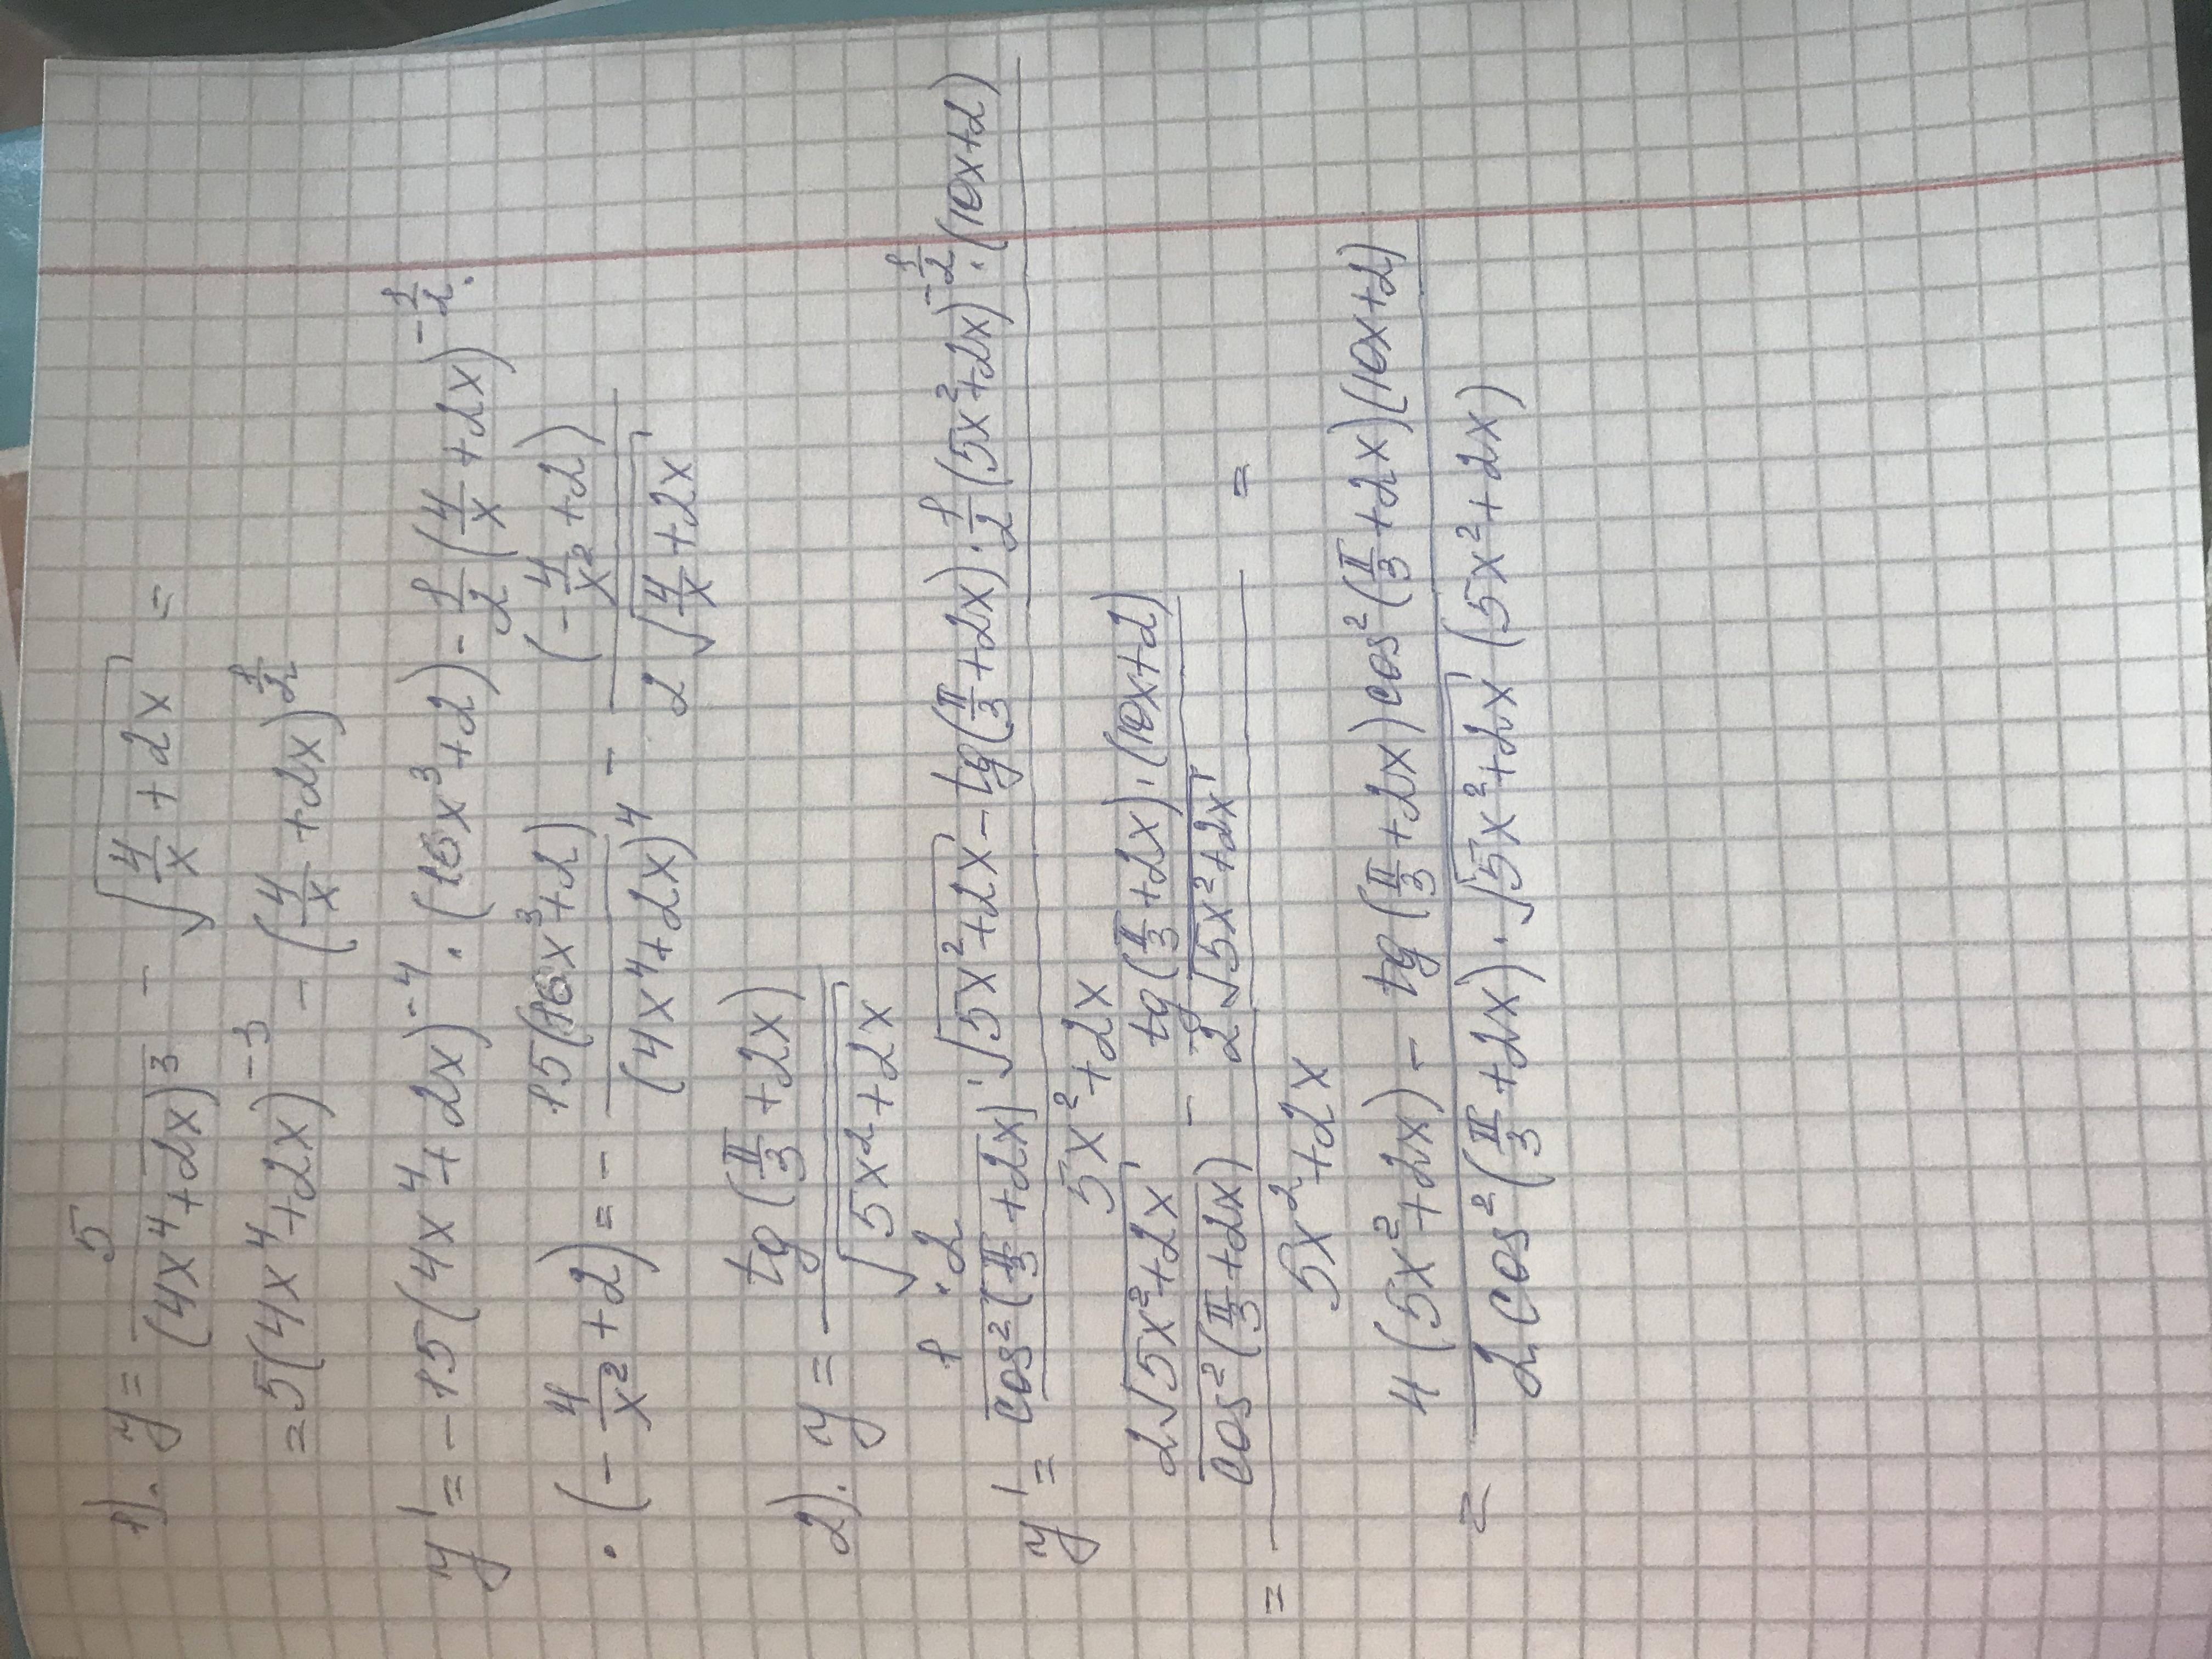 1). y = 5/(4x⁴+2x)³ − √(4/x + 2x) =
= 5(4x⁴+2x)⁻³ − (4/x + 2x)^(1/2)
y' = −15(4x⁴+2x)⁻⁴ · (16x³+2) − 1/2 (4/x + 2x)^(−1/2) ·
· (−4/x² + 2) = − 15(16x³+2)/(4x⁴+2x)⁴ − (−4/x² + 2)/(2√(4/x + 2x))
2). y = tg(π/3 + 2x)/√(5x²+2x)
y' = (1/cos²(π/3 + 2x) · 2 · √(5x²+2x) − tg(π/3 + 2x) · 1/2 (5x²+2x)^(−1/2) · (10x+2))/(5x²+2x)
= (2√(5x²+2x)/cos²(π/3 + 2x) − tg(π/3 + 2x)·(10x+2)/(2√(5x²+2x)))/(5x²+2x) =
= (4(5x²+2x) − tg(π/3 + 2x)cos²(π/3 + 2x)(10x+2))/(2cos²(π/3 + 2x)·√(5x²+2x) (5x²+2x))